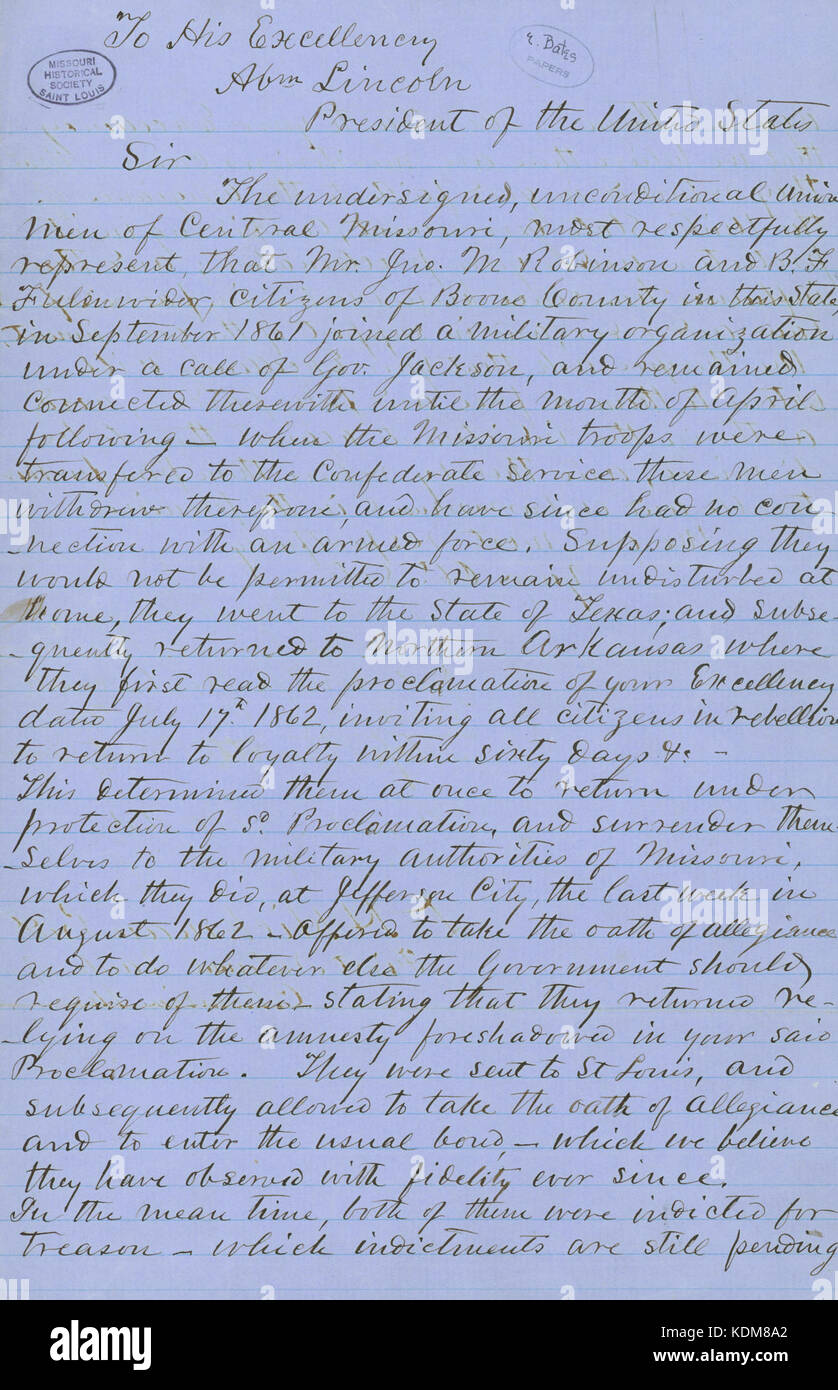 To His Excellency
Abm Lincoln
President of the United States
MISSOURI
HISTORICAL
SOCIETY
SAINT LOUIS
E. Bates
PAPERS
Sir
The undersigned, unconditional Union
men of Central Missouri, most respectfully
represent, that Mr. Jno. M Robinson and B. F.
Fulenwider, citizens of Boone County in this State
in September 1861 joined a military organization
under a call of Gov. Jackson, and remained
connected therewith until the month of April
following — when the Missouri troops were
transfered to the Confederate service these men
withdrew therefrom, and have since had no con-
-nection with an armed force. Supposing they
would not be permitted to remain undisturbed at
home, they went to the State of Texas; and subse-
-quently returned to Northern Arkansas where
they first read the proclamation of your Excellency
dated July 17th 1862, inviting all citizens in rebellion
to return to loyalty within sixty days &c —
This determined them at once to return under
protection of sd. Proclamation, and surrender them
-selves to the military authorities of Missouri,
which they did, at Jefferson City, the last week in
August 1862 — offered to take the oath of allegiance
and to do whatever else the Government should
require of them — stating that they returned re-
-lying on the amnesty foreshadowed in your said
Proclamation. They were sent to St Louis, and
subsequently allowed to take the oath of allegiance
and to enter the usual bond, — which we believe
they have observed with fidelity ever since.
In the mean time, both of them were indicted for
treason — which indictments are still pending
alamy
alamy stock photo
KDM8A2
www.alamy.com